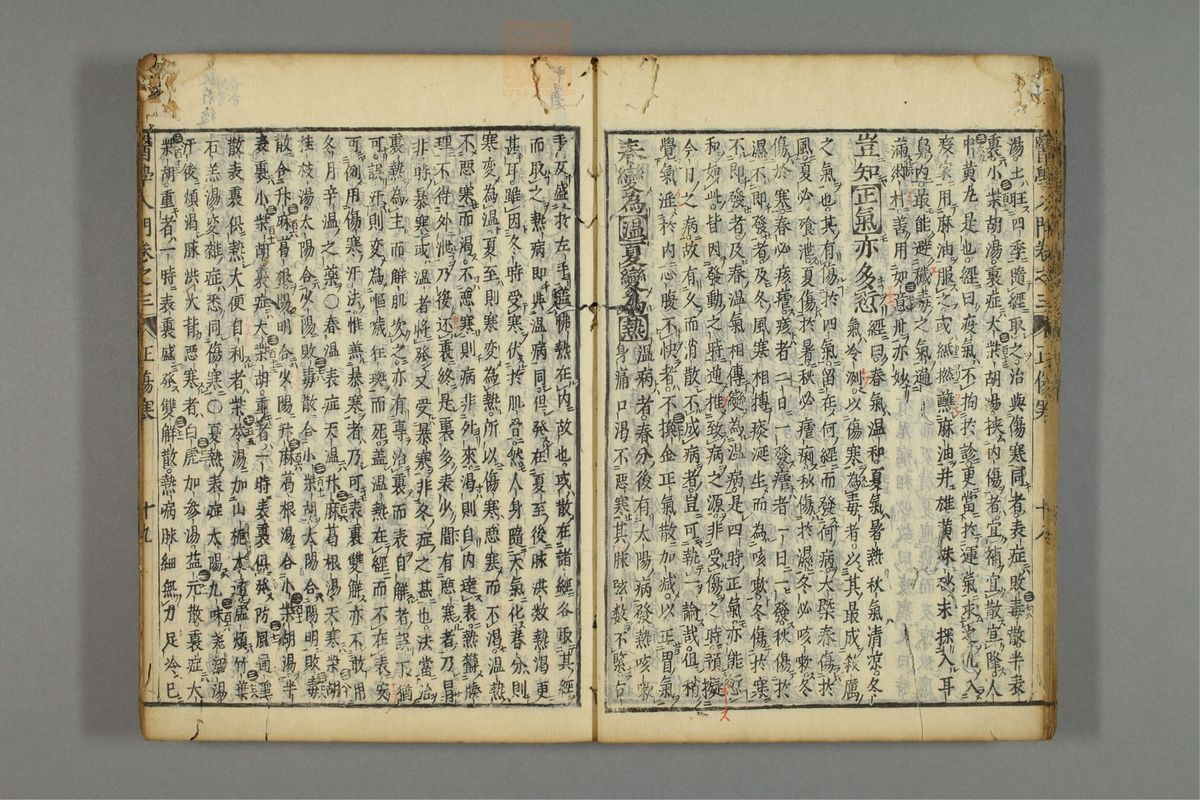 湯土旺四季隨經取之治與傷寒同者表症敗毒散半表
裏小柴胡湯裏症大柴胡湯挾內傷者宜補宜散宜降人
中黃丸是也經曰疫氣不拘於診更當於運氣求之凡入
疫家用麻油服之或紙撚蘸麻油并雄黃妹砂末探入耳
鼻內最能避穢毒之氣
豈知正氣亦多愆
經曰春氣溫和夏氣暑熱秋氣清凉冬
氣冷冽以傷寒為毒者以其最成殺厲
之氣也其有傷於四氣留在何經而發何病大槩春傷於
風夏必飱泄夏傷於暑秋必瘧痢秋傷於濕冬必咳嗽冬
傷於寒春必痎瘧痎者二日一發瘧者一日一發秋傷於
濕不即發者及冬風寒相搏痰涎生而為咳嗽冬傷於寒
不即發者及春溫氣相傳變為溫病是四時正氣亦能愆
和如此皆因發動之時逆推致病之源非受傷之時預擬
今日之病故有久而消散不成病者豈可執一論哉但稍
覺氣逆於內心腹不快者不換金正氣散加減以正胃氣
春變為溫夏變為熱
溫病者春分後有太陽病發熱咳嗽
身痛口渴不惡寒其脉弦數不緊右
醫學入門卷之三 正傷寒 十八
手反盛於左手盖怫熱在內故也或散在諸經各取其經
而取之熱病即與溫病同但發在夏至後脉洪數熱渴更
甚耳雖因冬時受寒伏於肌骨然人身隨天氣化春分則
寒變為溫夏至則寒變為熱所以傷寒惡寒而不渴溫熱
不惡寒而渴不惡寒則病非外來渴則自內達表熱鬱腠
理不得外泄乃復還裏終是裏多表少間有惡寒者乃冒
非時暴寒或溫者將發又受暴寒非冬症之甚也法當治
裏熱為主而解肌次之亦有專治裏而表自解者誤下猶
可誤汗則變為嘔噦狂斑而死盖溫熱在經而不在表安
可例用傷寒汗法惟兼暴寒者乃可表裏雙解亦不敢用
冬月辛溫之藥○春溫表症天溫升麻葛根湯天寒柴胡
桂枝湯太陽合少陽敗毒散合小柴胡太陽合陽明敗毒
散合升麻葛根陽明合少陽升麻葛根湯合小柴胡湯半
表裏小柴胡裏症大柴胡重者一時表裏俱發防風通聖
散表裏俱熱大便自利者柴苓湯加山梔木通虛煩竹葉
石羔湯變雜症悉同傷寒○夏熱表症太陽九味羌活湯
汗後煩渴脉洪大背惡寒者白虎加參湯益元散裏症大
柴胡重者一時表裏盛發雙解散熱病脉細無力足冷已
醫學入門卷之三 正傷寒 十九